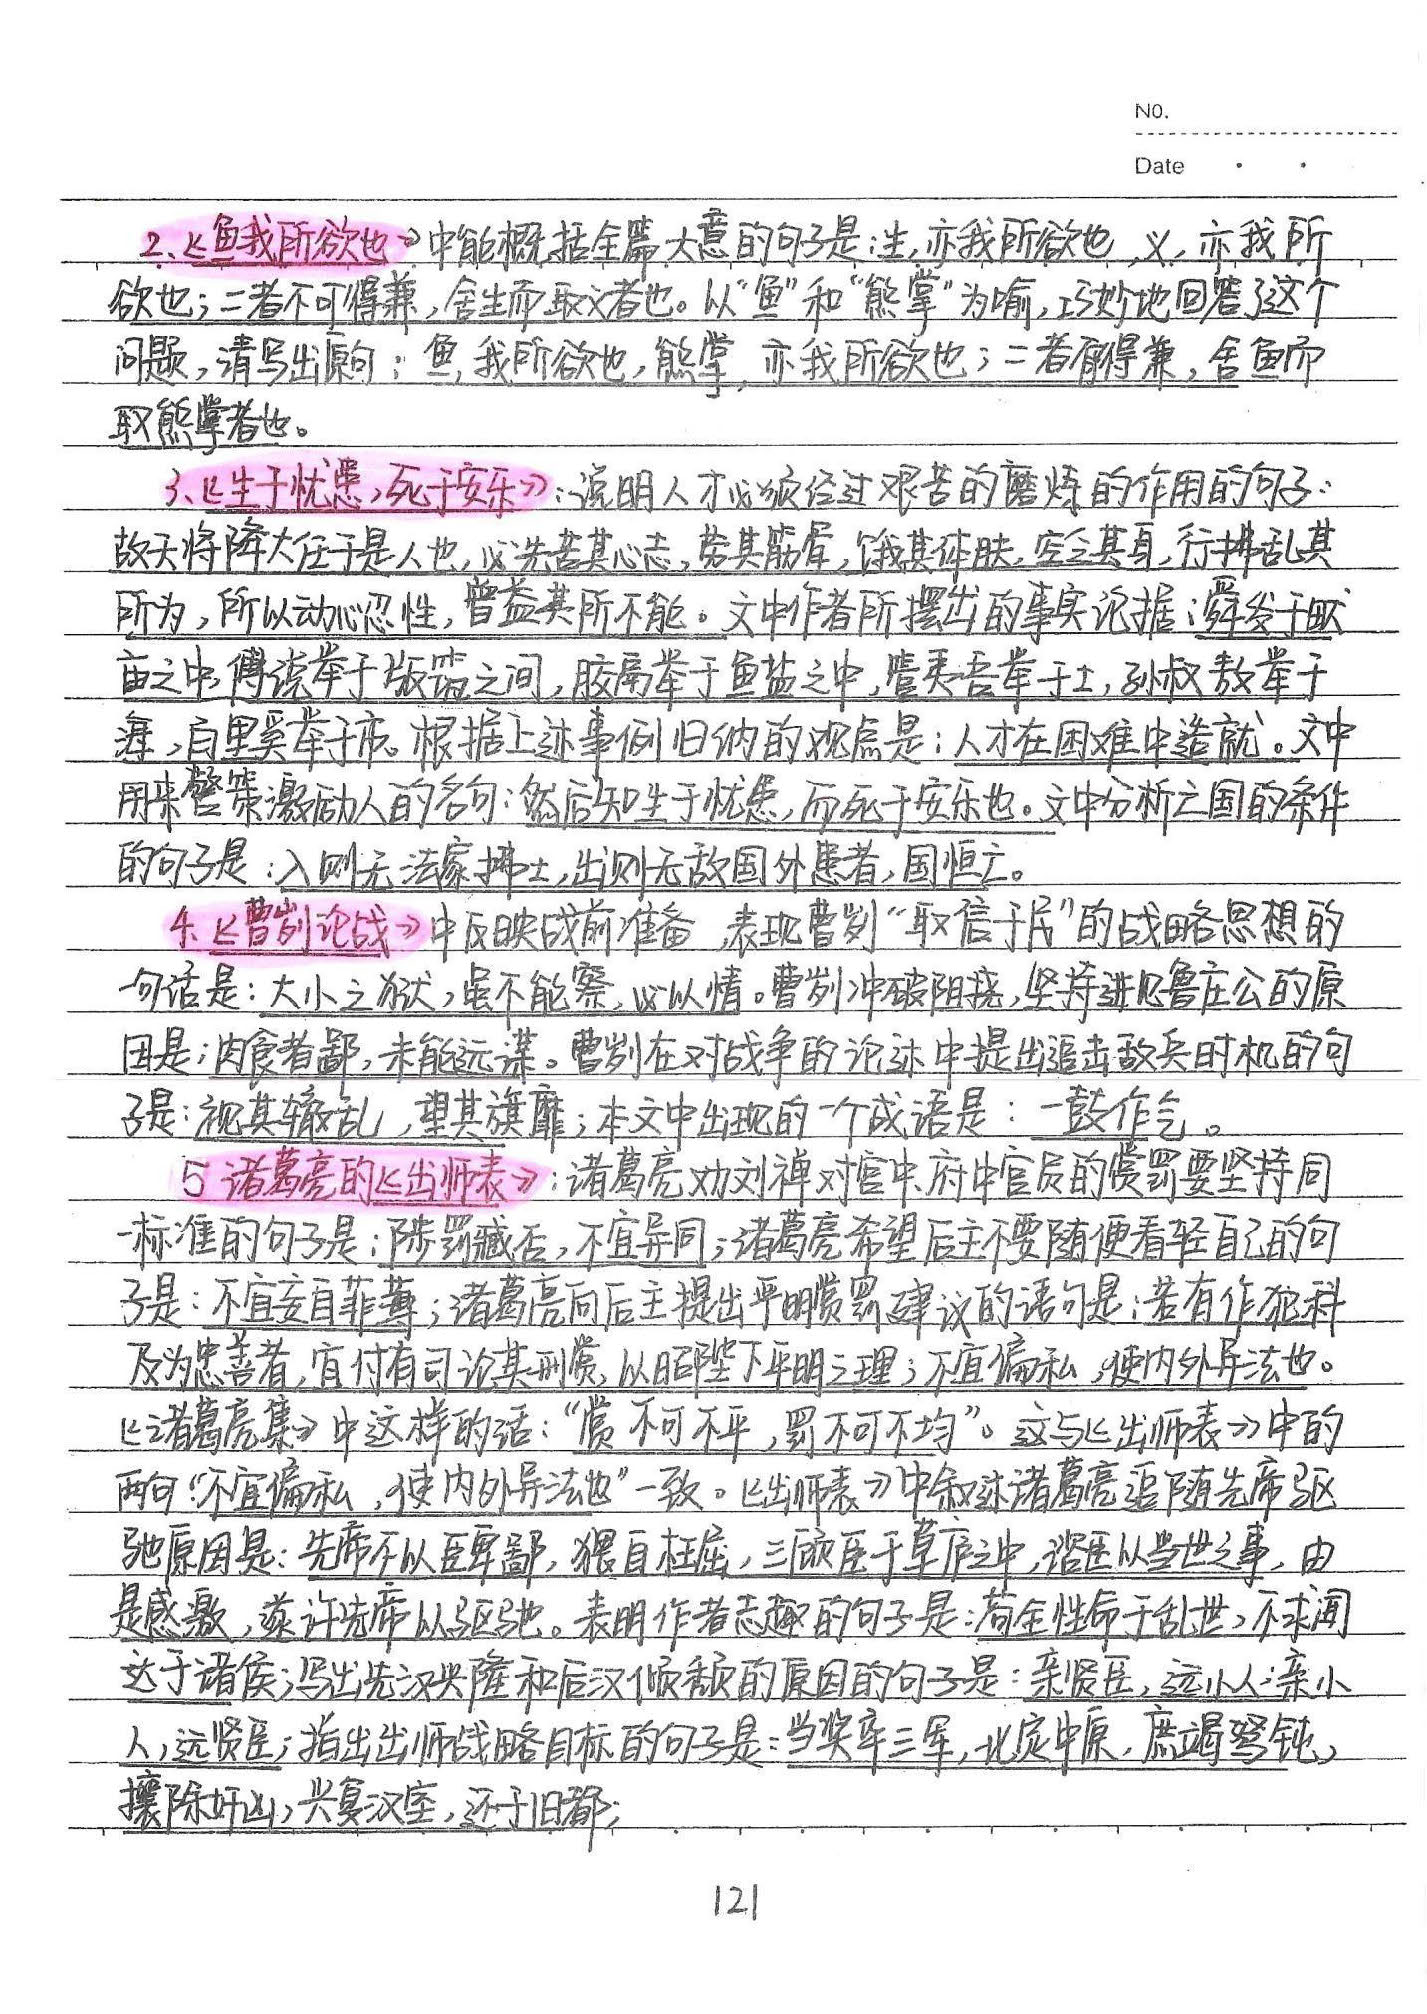 NO.
Date
2、《鱼我所欲也》中能概括全篇大意的句子是:生,亦我所欲也,义,亦我所
欲也;二者不可得兼,舍生而取义者也。以“鱼”和“熊掌”为喻,巧妙地回答了这个
问题,请写出原句:鱼,我所欲也,熊掌,亦我所欲也;二者有得兼,舍鱼而
取熊掌者也。
3、《生于忧患,死于安乐》:说明人才必须经过艰苦的磨炼的作用的句子:
故天将降大任于是人也,必先苦其心志,劳其筋骨,饿其体肤,空乏其身,行拂乱其
所为,所以动心忍性,曾益其所不能。文中作者所摆出的事实论据:舜发于畎
亩之中,傅说举于版筑之间,胶鬲举于鱼盐之中,管夷吾举于士,孙叔敖举于
海,百里奚举于市。根据上述事例归纳的观点是:人才在困难中造就。文中
用来警策激励人的名句:然后知生于忧患,而死于安乐也。文中分析亡国的条件
的句子是:入则无法家拂士,出则无敌国外患者,国恒亡。
4、《曹刿论战》中反映战前准备,表现曹刿“取信于民”的战略思想的
一句话是:大小之狱,虽不能察,必以情。曹刿冲破阻挠,坚持进见鲁庄公的原
因是:肉食者鄙,未能远谋。曹刿在对战争的论述中提出追击敌兵时机的句
子是:视其辙乱,望其旗靡;本文中出现的一个成语是:一鼓作气。
5 诸葛亮的《出师表》:诸葛亮劝刘禅对宫中府中官员的赏罚要坚持同
一标准的句子是:陟罚臧否,不宜异同;诸葛亮希望后主不要随便看轻自己的句
子是:不宜妄自菲薄;诸葛亮向后主提出平明赏罚建议的语句是:若有作犯科
及为忠善者,宜付有司论其刑赏,以昭陛下平明之理;不宜偏私,使内外异法也。
《诸葛亮集》中这样的话:“赏不可不平,罚不可不均”。这与《出师表》中的
两句“不宜偏私,使内外异法也”一致。《出师表》中叙述诸葛亮追随先帝驱
驰原因是:先帝不以臣卑鄙,猥自枉屈,三顾臣于草庐之中,谘臣以当世之事,由
是感激,遂许先帝以驱驰。表明作者志趣的句子是:苟全性命于乱世,不求闻
达于诸侯;写出先汉兴隆和后汉倾颓的原因的句子是:亲贤臣,远小人;亲小
人,远贤臣;指出出师战略目标的句子是:当奖率三军,北定中原,庶竭驽钝,
攘除奸凶,兴复汉室,还于旧都;
121